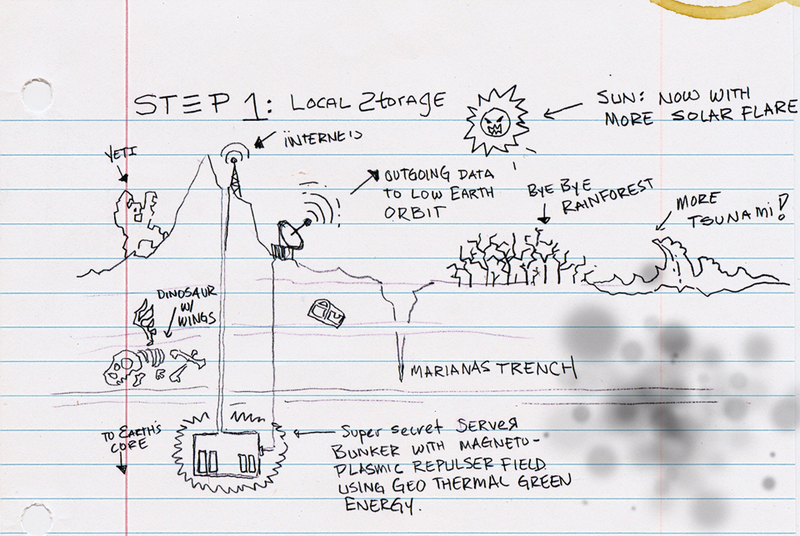 STEP 1: LOCAL STORAGE
SUN: NOW WITH
MORE SOLAR FLARE
INTERNETS
YETI
OUTGOING DATA
TO LOW EARTH
ORBIT
BYE BYE
RAINFOREST
MORE
TSUNAMI!
DINOSAUR
W/
WINGS
MARIANAS TRENCH
TO EARTH'S
CORE
Super secret SERVER
BUNKER WITH MAGNETO-
PLASMIC REPULSER FIELD
USING GEO THERMAL GREEN
ENERGY.